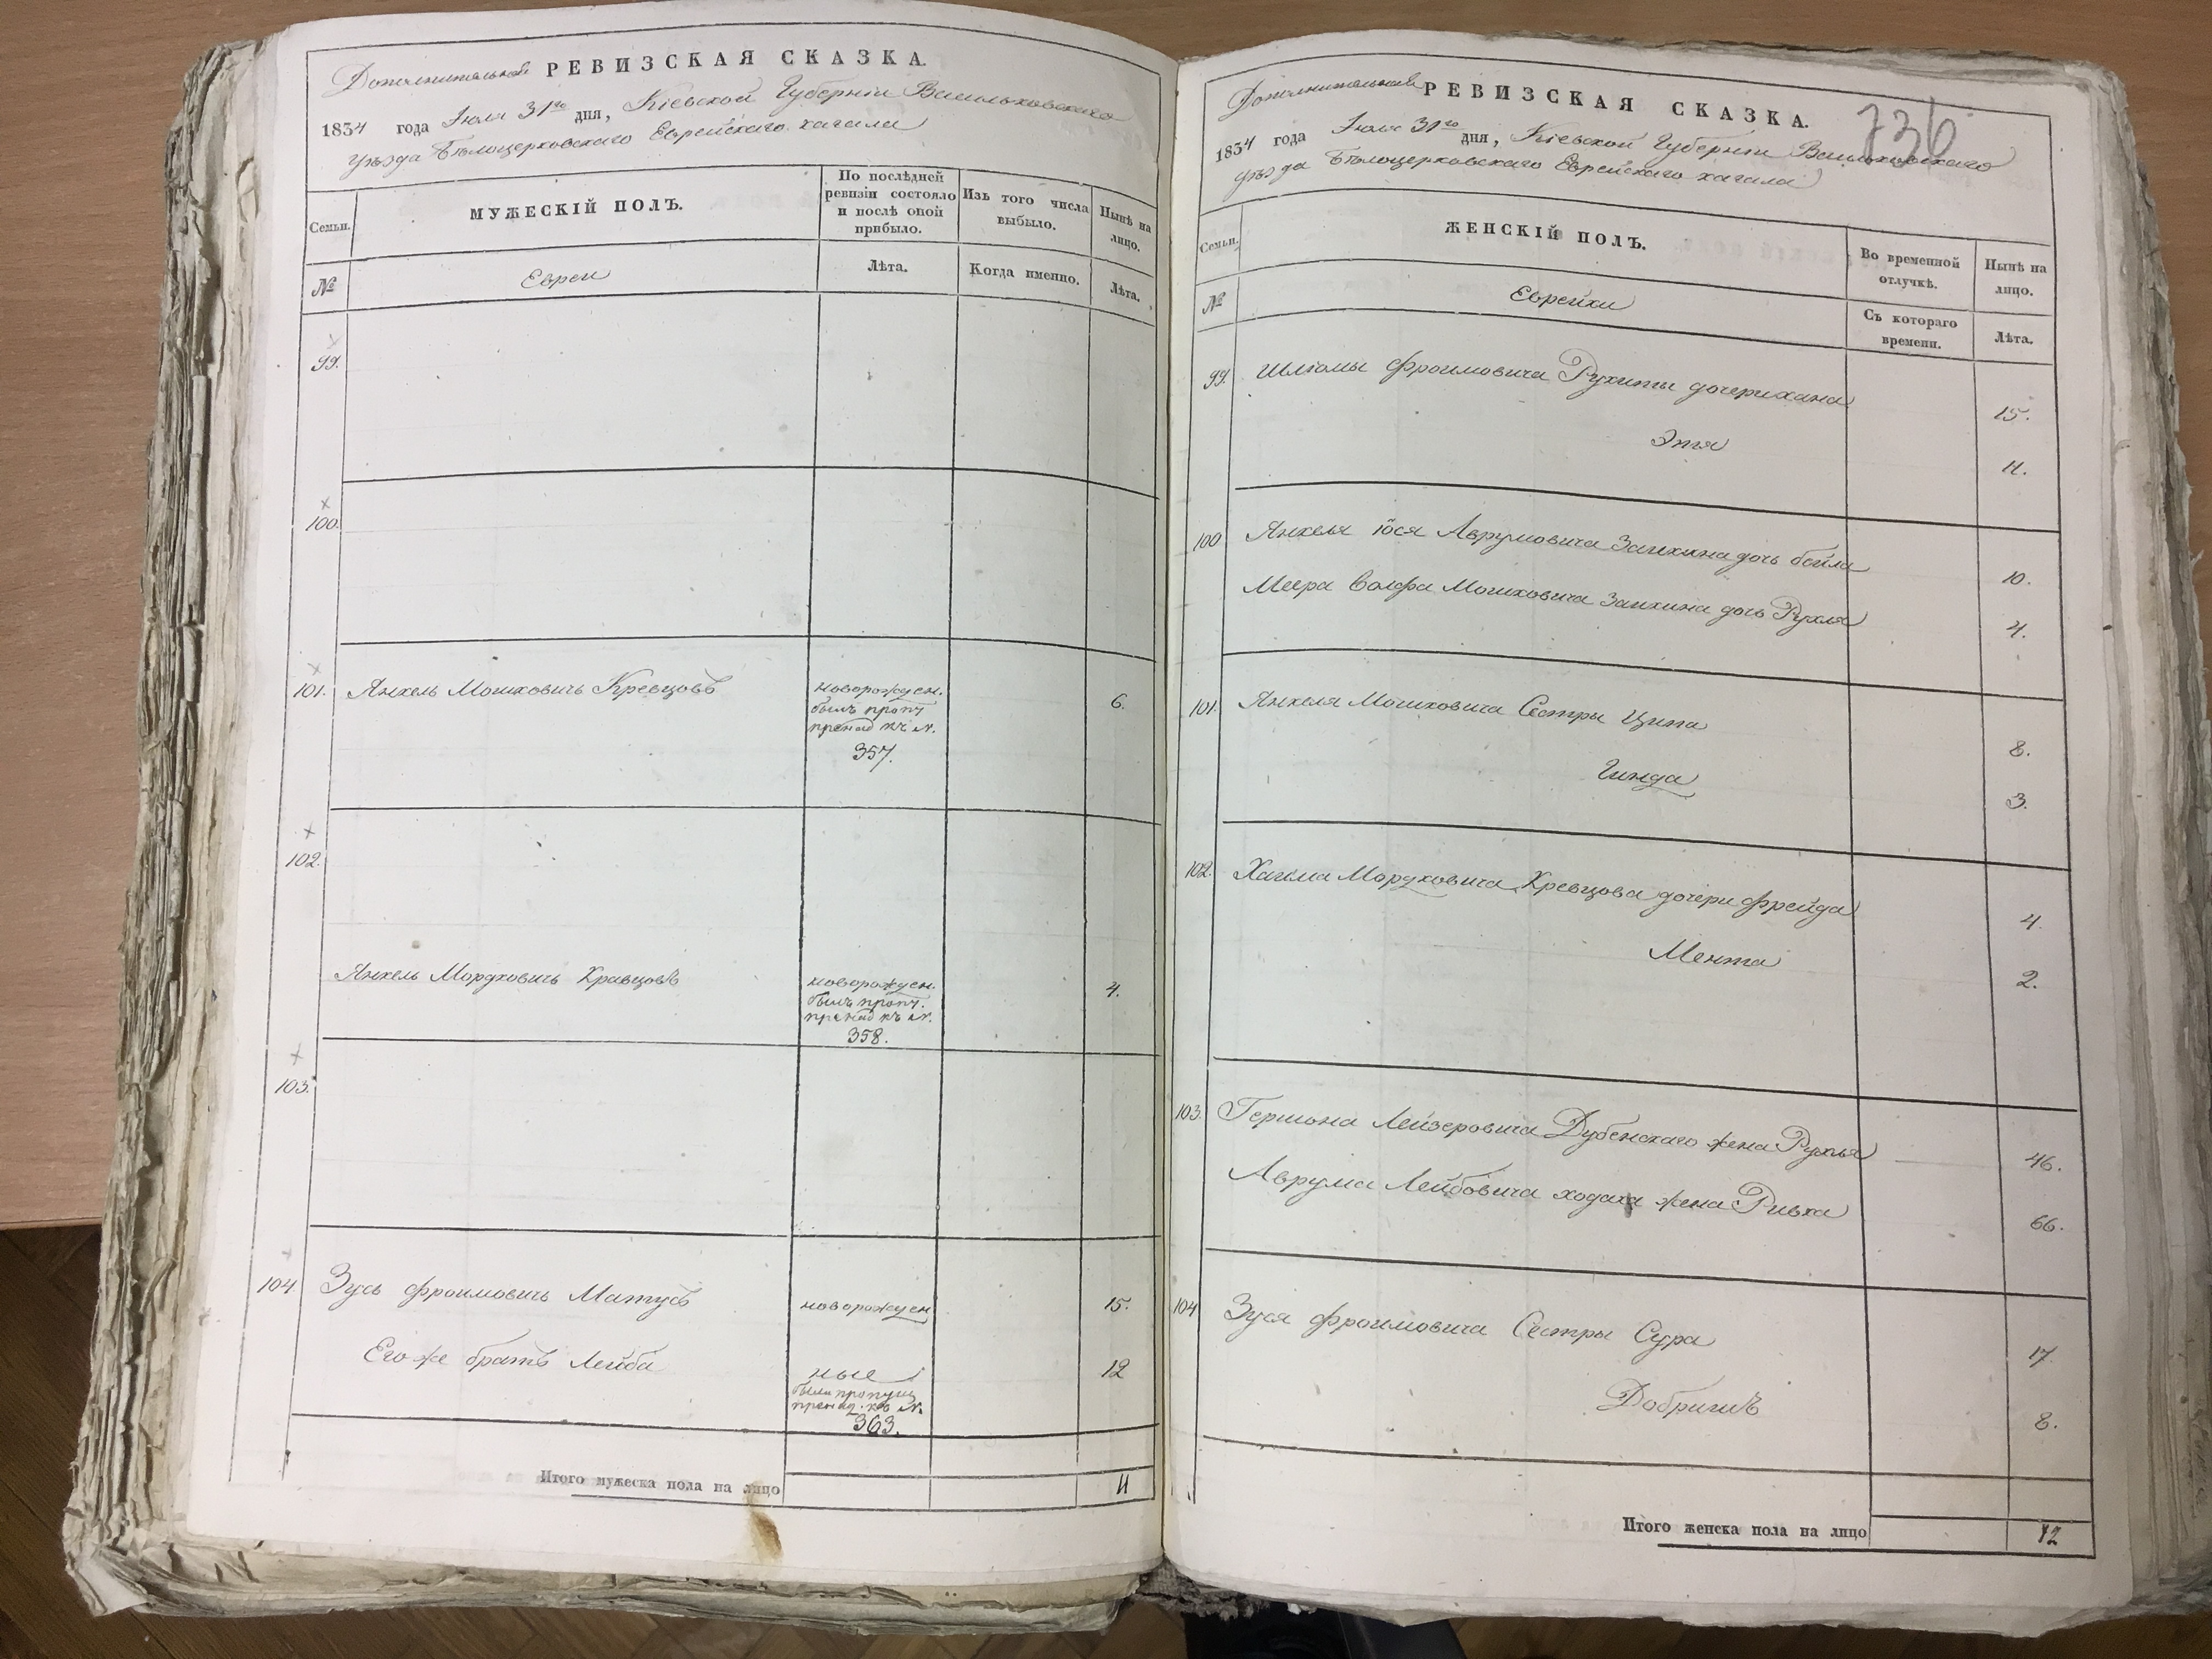 Дополнительная РЕВИЗСКАЯ СКАЗКА.
1834 года Іюля 31го дня, Кіевской Губерніи Васильковскаго
уѣзда Бѣлоцерковскаго Еврейскаго кагала
Семьи.
МУЖЕСКІЙ ПОЛЪ.
По послѣдней
ревизіи состояло
и послѣ оной
прибыло.
Изъ того числа
выбыло.
Нынѣ на
лицо.
№
Евреи
Лѣта.
Когда именно.
Лѣта.
99.
100.
101. Янкель Мошковичь Кревцовъ новорожден. 6.
былъ проп
принад къ №.
357.
102.
Янкель Мордковичь Кравцовъ новорожден. 4.
былъ проп.
принад къ №.
358.
103.
104 Зусь Фроимовичь Матусъ новорожден 15.
Его же братъ Лейба ные 12
были пропущ
принад. къ №.
363.
Итого мужеска пола на лицо 4
Дополнительная РЕВИЗСКАЯ СКАЗКА.
736
1834 года Іюля 31го дня, Кіевской Губерніи Васильковскаго
уѣзда Бѣлоцерковскаго Еврейскаго кагала
Семьи.
ЖЕНСКІЙ ПОЛЪ.
Во временной
отлучкѣ.
Нынѣ на
лицо.
№
Еврейки
Съ котораго
времени.
Лѣта.
99. Шлюмы Фроимовича Рухиты дочери хана 15.
Этя 11.
100 Янкеля Іося Аврумовича Заикина дочь бейла 10.
Меера Волфа Мошковича Заикина дочь Рухля 4.
101. Янкеля Мошковича Сестры Ципа 8.
Гинда 3.
102. Хаима Мордковича Кревцова дочери Фрейда 4
Мента 2.
103. Гершона Лейзеровича Дубенскаго жена Рухля 46.
Аврума Лейбовича ходака жена Ривка 66.
104 Зуся Фроимовича Сестры Сура 17
Добришъ 8.
Итого женска пола на лицо 12